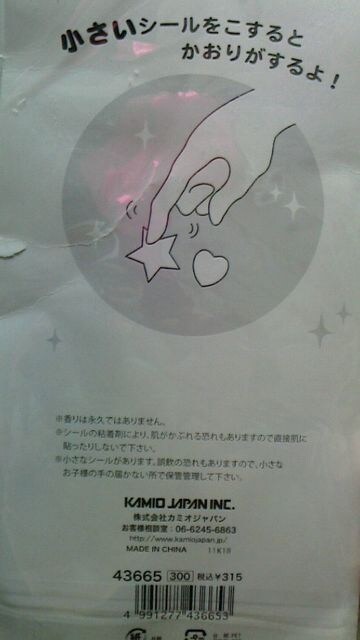 小さいシールをこすると
かおりがするよ!
※香りは永久ではありません。
※シールの粘着剤により、肌がかぶれる恐れもありますので直接肌に
貼ったりしないで下さい。
※小さなシールがあります。誤飲の恐れもありますので、小さな
お子様の手の届かない所で保管管理して下さい。
KAMIO JAPAN INC.
株式会社カミオジャパン
お客様相談室: 06-6245-6863
http://www.kamiojapan.jp/
MADE IN CHINA 11K18
43665 300 税込¥315
4 991277 436653
紙